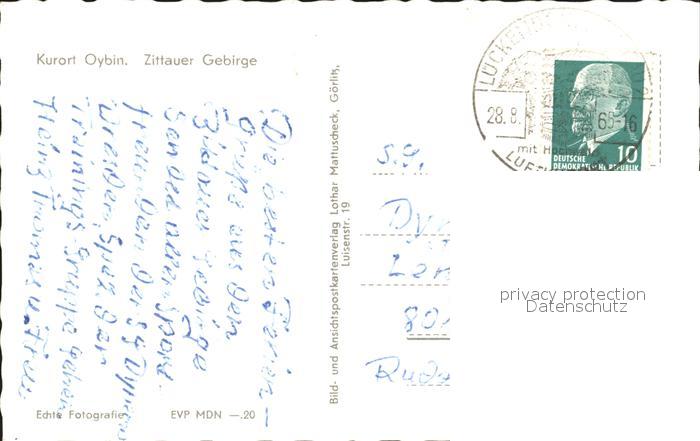 Kurort Oybin. Zittauer Gebirge
Die besten Ferien-
grüße aus dem
Zittauer Gebirge
senden allen Sport-
freunden der SG Dynamo
Dresden, Spez. der
Trainings Gruppe
Heinz Thomas u. Frau
Echte Fotografie
EVP MDN —.20
Bild- und Ansichtspostkartenverlag Lothar Mattuscheck, Görlitz,
Luisenstr. 19
LÜCKEN
28.8.
65-16
mit Hoch
LUF
DEUTSCHE
DEMOKRATISCHE REPUBLIK
10
S.G.
Dyn
801
privacy protection
Datenschutz